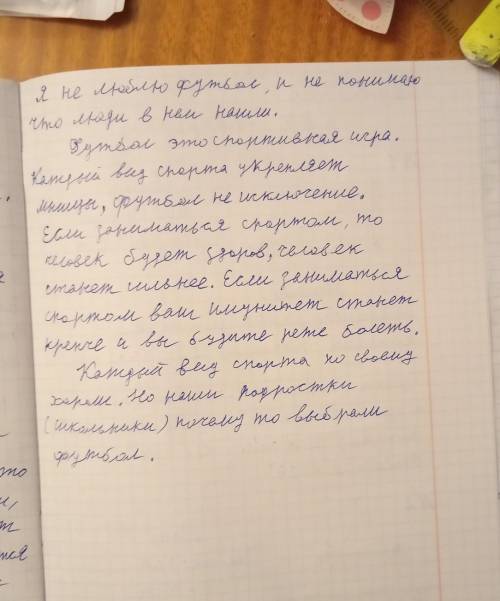 Я не люблю футбол, и не понимаю
что люди в нем нашли.
Футбол это спортивная игра.
Каждый вид спорта укрепляет
мышцы, футбол не исключение.
Если заниматься спортом, то
человек будет здоров, человек
станет сильнее. Если заниматься
спортом ваш имунитет станет
крепче и вы будите реже болеть.
Каждый вид спорта по своему
хорош. Но наши подростки
(школьники) почему то выбрали
футбол.